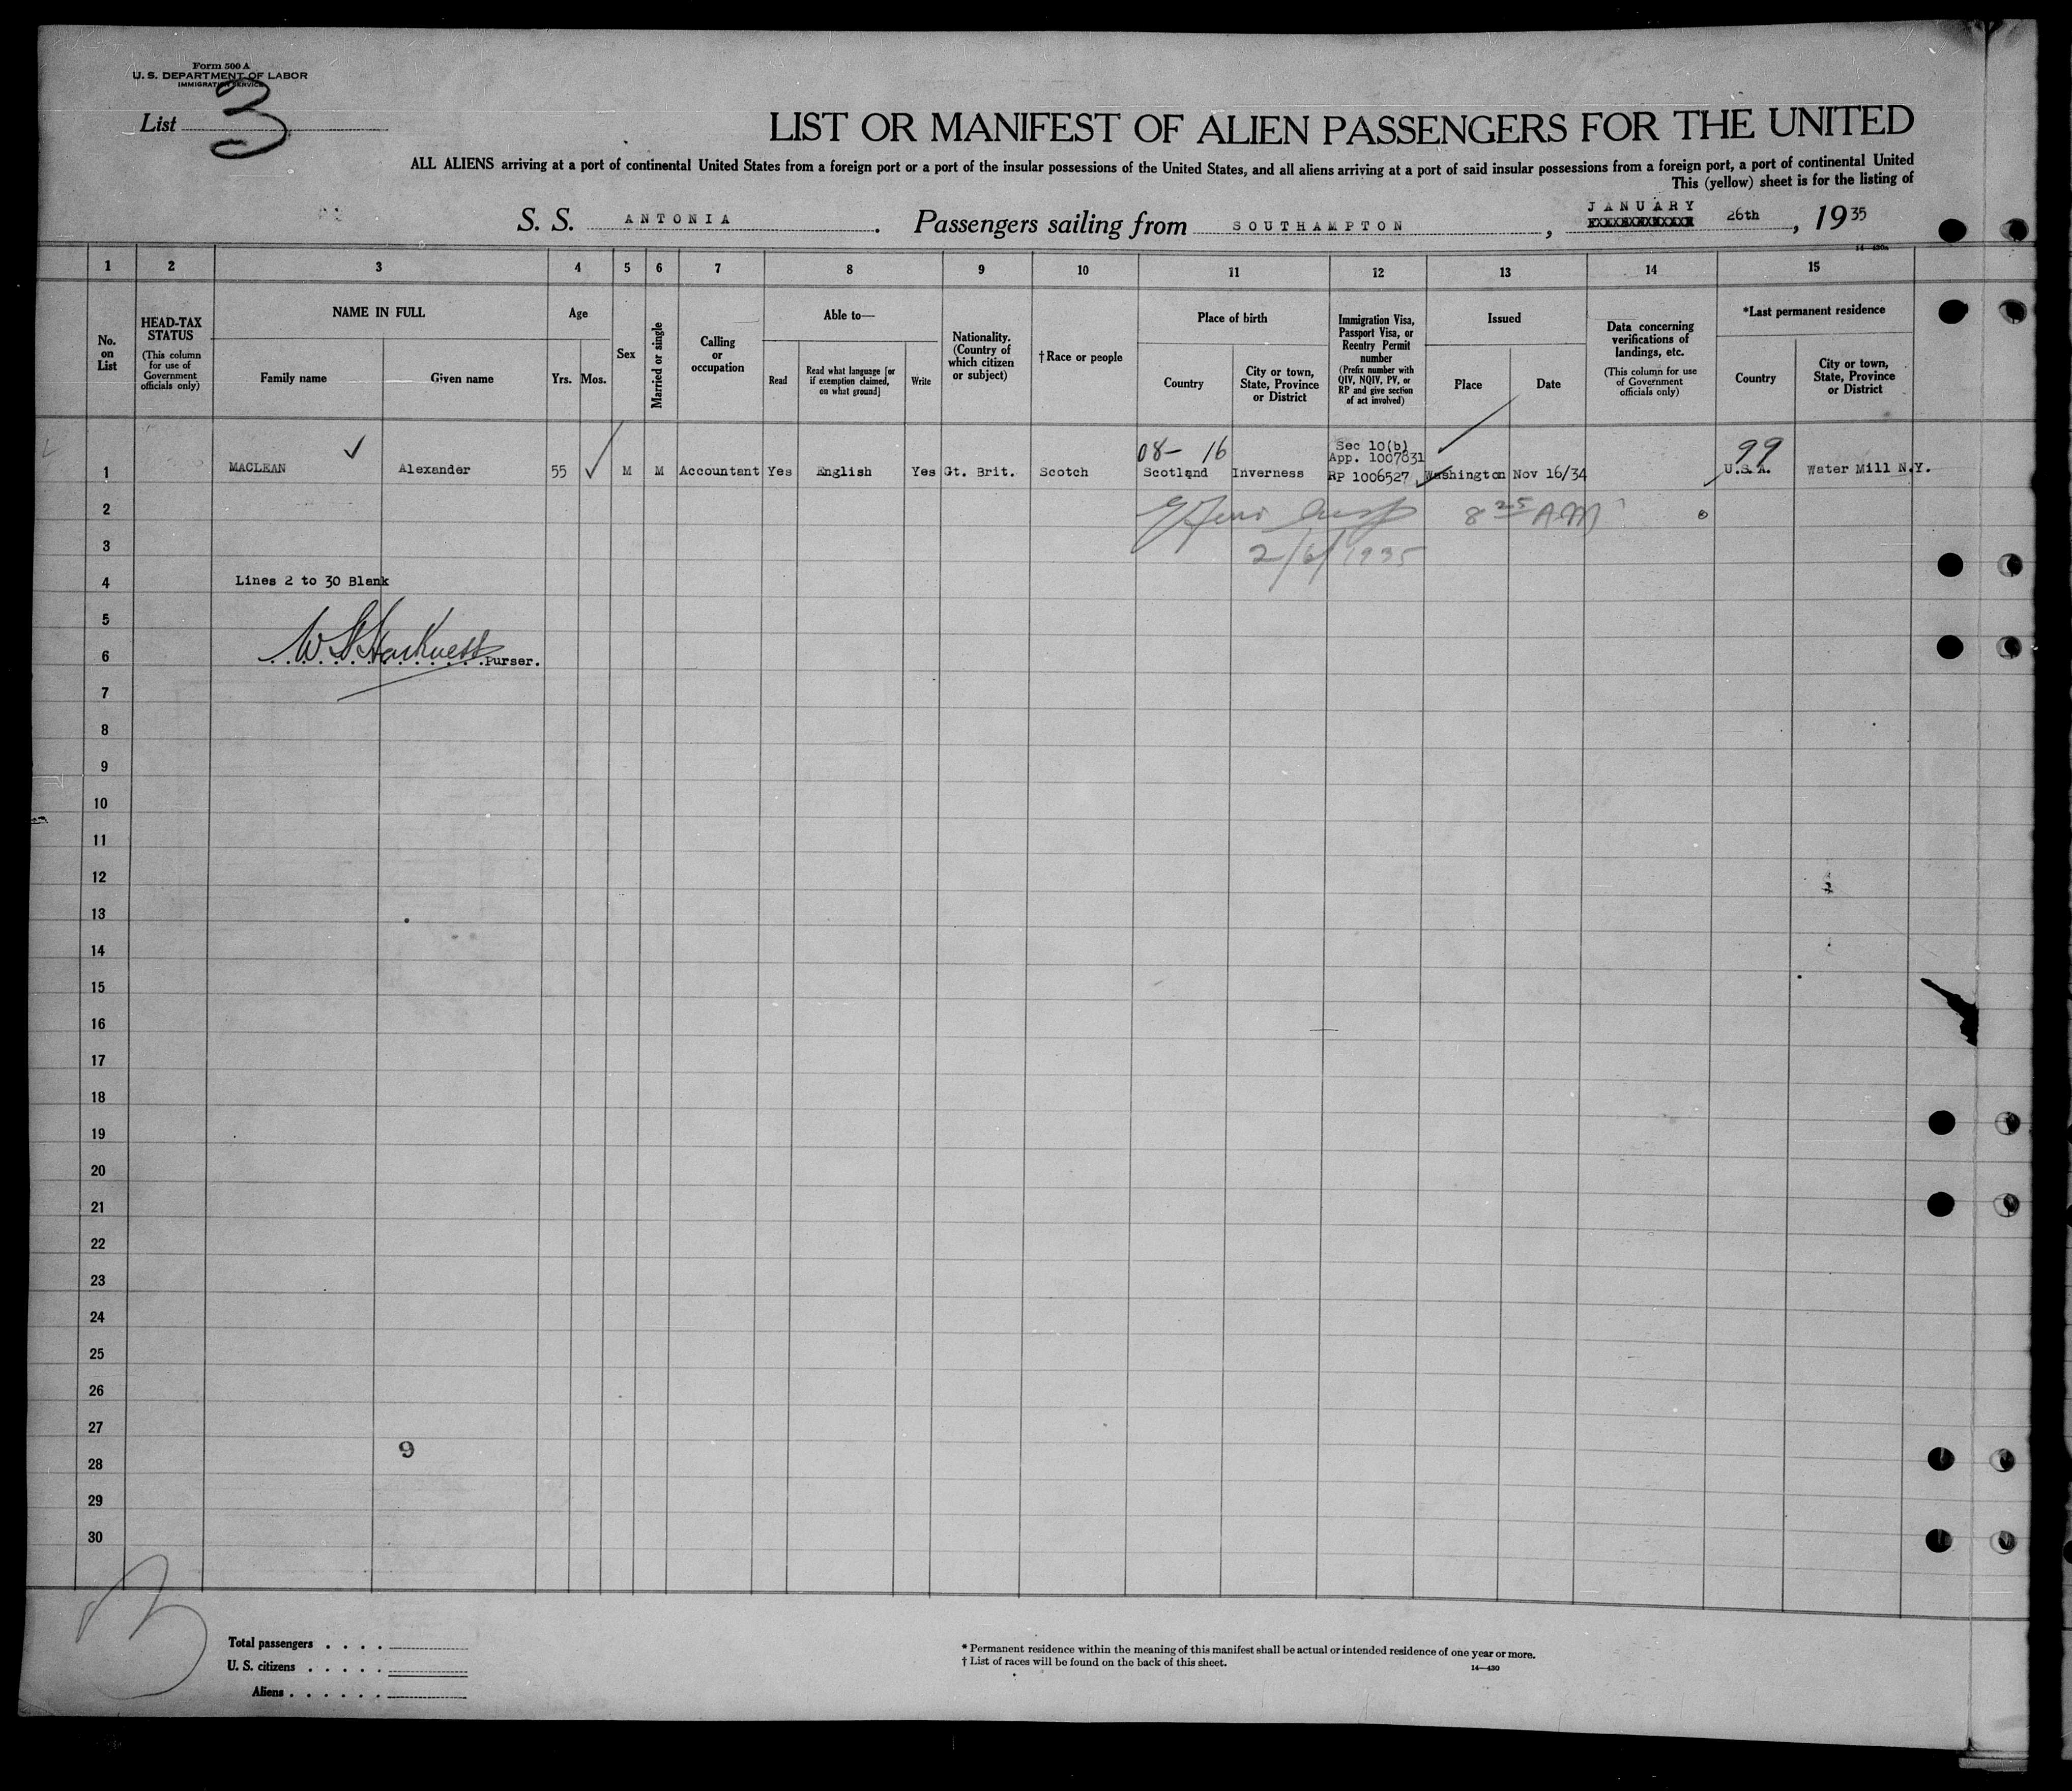 Form 500 A
U. S. DEPARTMENT OF LABOR
IMMIGRATION SERVICE
List 3
LIST OR MANIFEST OF ALIEN PASSENGERS FOR THE UNITED
ALL ALIENS arriving at a port of continental United States from a foreign port or a port of the insular possessions of the United States, and all aliens arriving at a port of said insular possessions from a foreign port, a port of continental United
This (yellow) sheet is for the listing of
S. S. ANTONIA. Passengers sailing from SOUTHAMPTON, JANUARY 26th, 1935
14—430a
1 2 3 4 5 6 7 8 9 10 11 12 13 14 15
No. on List
HEAD-TAX STATUS
(This column for use of Government officials only)
NAME IN FULL
Family name
Given name
Age
Yrs. Mos.
Sex
Married or single
Calling or occupation
Able to—
Read
Read what language [or if exemption claimed, on what ground]
Write
Nationality. (Country of which citizen or subject)
†Race or people
Place of birth
Country
City or town, State, Province or District
Immigration Visa, Passport Visa, or Reentry Permit number
(Prefix number with QIV, NQIV, PV, or RP and give section of act involved)
Issued
Place
Date
Data concerning verifications of landings, etc.
(This column for use of Government officials only)
*Last permanent residence
Country
City or town, State, Province or District
08- 16
Sec 10(b)
App. 1007831
99
1 MACLEAN Alexander 55 M M Accountant Yes English Yes Gt. Brit. Scotch Scotland Inverness RP 1006527 Washington Nov 16/34 U.S.A. Water Mill N.Y.
2 8 25 AM
3 2/6/1935
4 Lines 2 to 30 Blank
5
6 W Harkness Purser.
7
8
9
10
11
12
13
14
15
16
17
18
19
20
21
22
23
24
25
26
27
9
28
29
30
3
Total passengers . . . .
U. S. citizens . . . . .
Aliens . . . . . .
* Permanent residence within the meaning of this manifest shall be actual or intended residence of one year or more.
† List of races will be found on the back of this sheet.
14—430